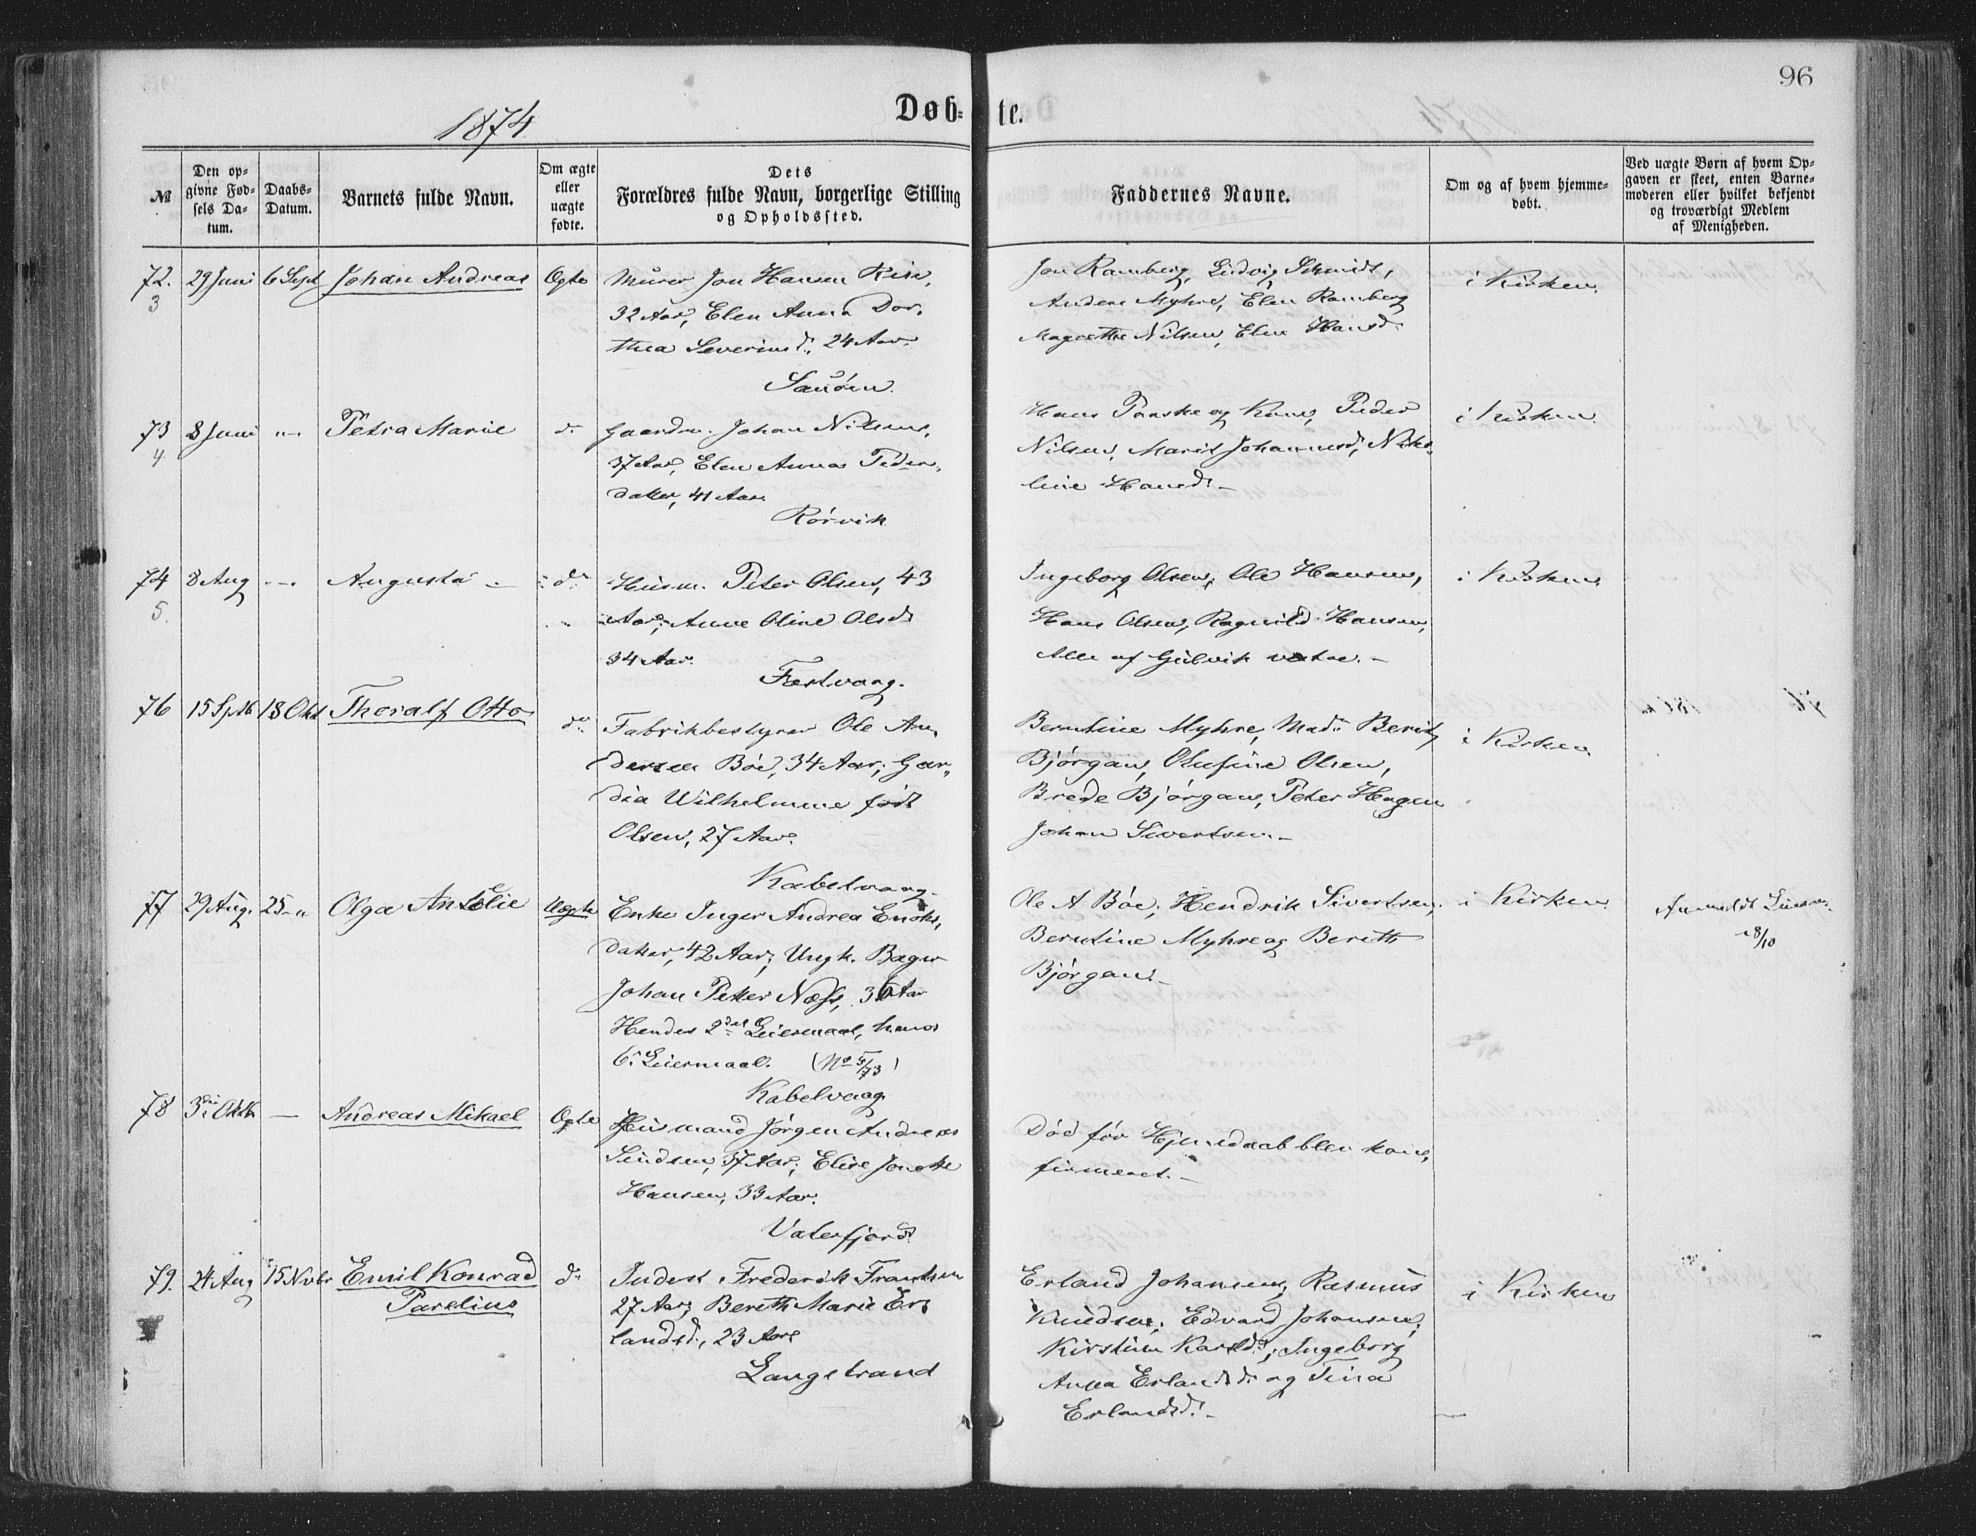 96
1874
Døb= te.
№
Den op-
givne Fød-
sels Da-
tum.
Daabs-
Datum.
Barnets fulde Navn.
Om ægte
eller
uægte
fødte.
Dets
Forældres fulde Navn, borgerlige Stilling
og Opholdssted.
Faddernes Navne.
Om og af hvem hjemme-
døbt.
Ved uægte Børn af hvem Op-
gaven er skeet, enten Barne-
moderen eller hvilket bekjendt
og troværdigt Medlem
af Menigheden.
72. 29 Juni 6 Sept Johan Andreas Ægte Murer Jon Hansen Risn,
3
32 Aar, Elen Anna Dor-
thea Severinsd., 24 Aar.
Sauøen.
Jon Ramberg, Ludvig Schmidt,
Anders Myhre, Elen Ramberg
Magrethe Nilsen, Elen Hansd.
i Kirken.
73 8 Juni -"- Petra Marie do Gaardm. Johan Nilsens,
4
37 Aar, Elen Annas Peders-
datter, 41 Aar.
Rørvik
Hans Paaske og Kone, Peder
Nilsen, Marit Johannesd., Niko-
line Hansd. -
i Kirken
74 8 Aug -"- Augusta - do Husm. Peter Olsens, 43
5.
Aar, Anne Oline Olsd.
34 Aar.
Festvaag.
Ingeborg Olsen, Ole Hansens,
Hans Olsen, Ragnild Hansen,
Alle af Gulvik vestre. -
i Kirken.
76 15 Septb 18 Oktb Thoralf Otto do Fabrikbestyrer Ole An-
dersen Böe, 34 Aar; Gar-
dia Wilhelmine født
Olsen, 27 Aar.
Kabelvaag.
Berntine Myhre, Mad. Berit
Bjørgan, Olufine Olsen,
Brede Bjørgan, Peter Hagen
Johan Sivertsen. -
i Kirken
77 29 Aug. 25-" Olga Antelie Uægte Enke Inger Andrea Enoks-
datter, 42 Aar; Ungk. Bager
Johan Petter Næss, 36 Aar
Hendes 2det Leiermaal, hans
6. Leiermaal. (No 5/73)
Kabelvaag
Ole A Böe, Hendrik Sivertsen,
Berntine Myhre og Bereth
Bjørgan. -
i Kirken
18/10
78 3die Oktb. - Andreas Mikael Ægte Husmand Jørgen Andreas
Sundsen, 37 Aar; Elise Jonette
Hansen, 33 Aar.
Vaterfjord
Død før Hjemedaab blev kon-
firmeret. -
79. 24 Aug 15 Novbr Emil Konrad do Inderst Frederik Frantsen
Parelius
27 Aar; Bereth Marie Er-
landsd., 23 Aar
Langstrand
Erland Johansen, Rasmus
Knudsen, Edvard Johansen,
Kirstine Karlsd.; Ingeborg
Anna Erlandsd. og Tina
Erlandsd. -
i Kirken